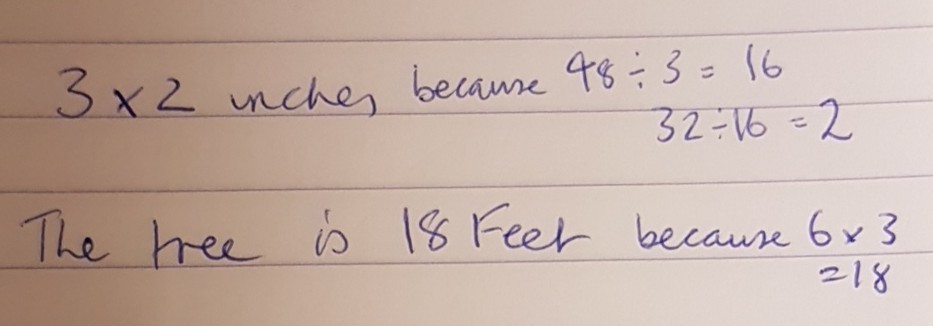 3 x 2 inches because 48 ÷ 3 = 16
32 ÷ 16 = 2
The tree is 18 Feet because 6 x 3
= 18